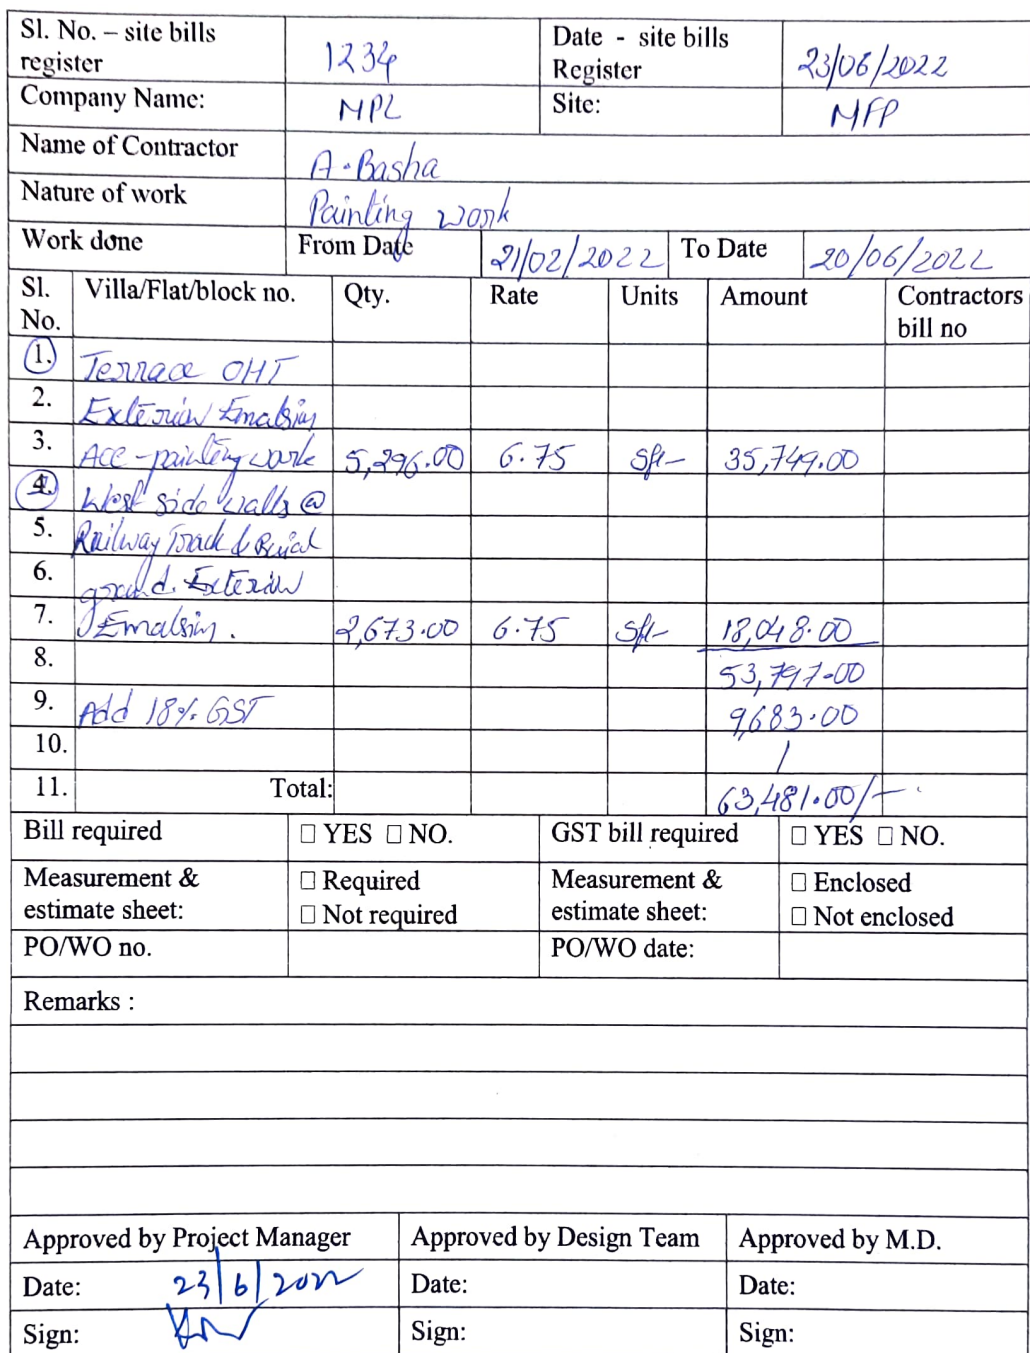 Sl. No. – site bills register 1234 Date - site bills Register 23/06/2022
Company Name: MPL Site: MFP
Name of Contractor A. Basha
Nature of work Painting work
Work done From Date 21/02/2022 To Date 20/06/2022
Sl. No. Villa/Flat/block no. Qty. Rate Units Amount Contractors bill no
1. Terrace OHT
2. Exterior Emalsin
3. Ace - painting work 5,296.00 6.75 Sft- 35,749.00
4. West side walls @
5. Railway Track & Burial
6. ground. Exterior
7. Emalsin. 2,673.00 6.75 Sft- 18,048.00
8. 53,797.00
9. Add 18% GST 9,683.00
10.
11. Total: 63,481.00/-
Bill required □ YES □ NO. GST bill required □ YES □ NO.
Measurement & estimate sheet: □ Required □ Not required Measurement & estimate sheet: □ Enclosed □ Not enclosed
PO/WO no. PO/WO date:
Remarks :
Approved by Project Manager Approved by Design Team Approved by M.D.
Date: 23/6/2022 Date: Date:
Sign: Sign: Sign: